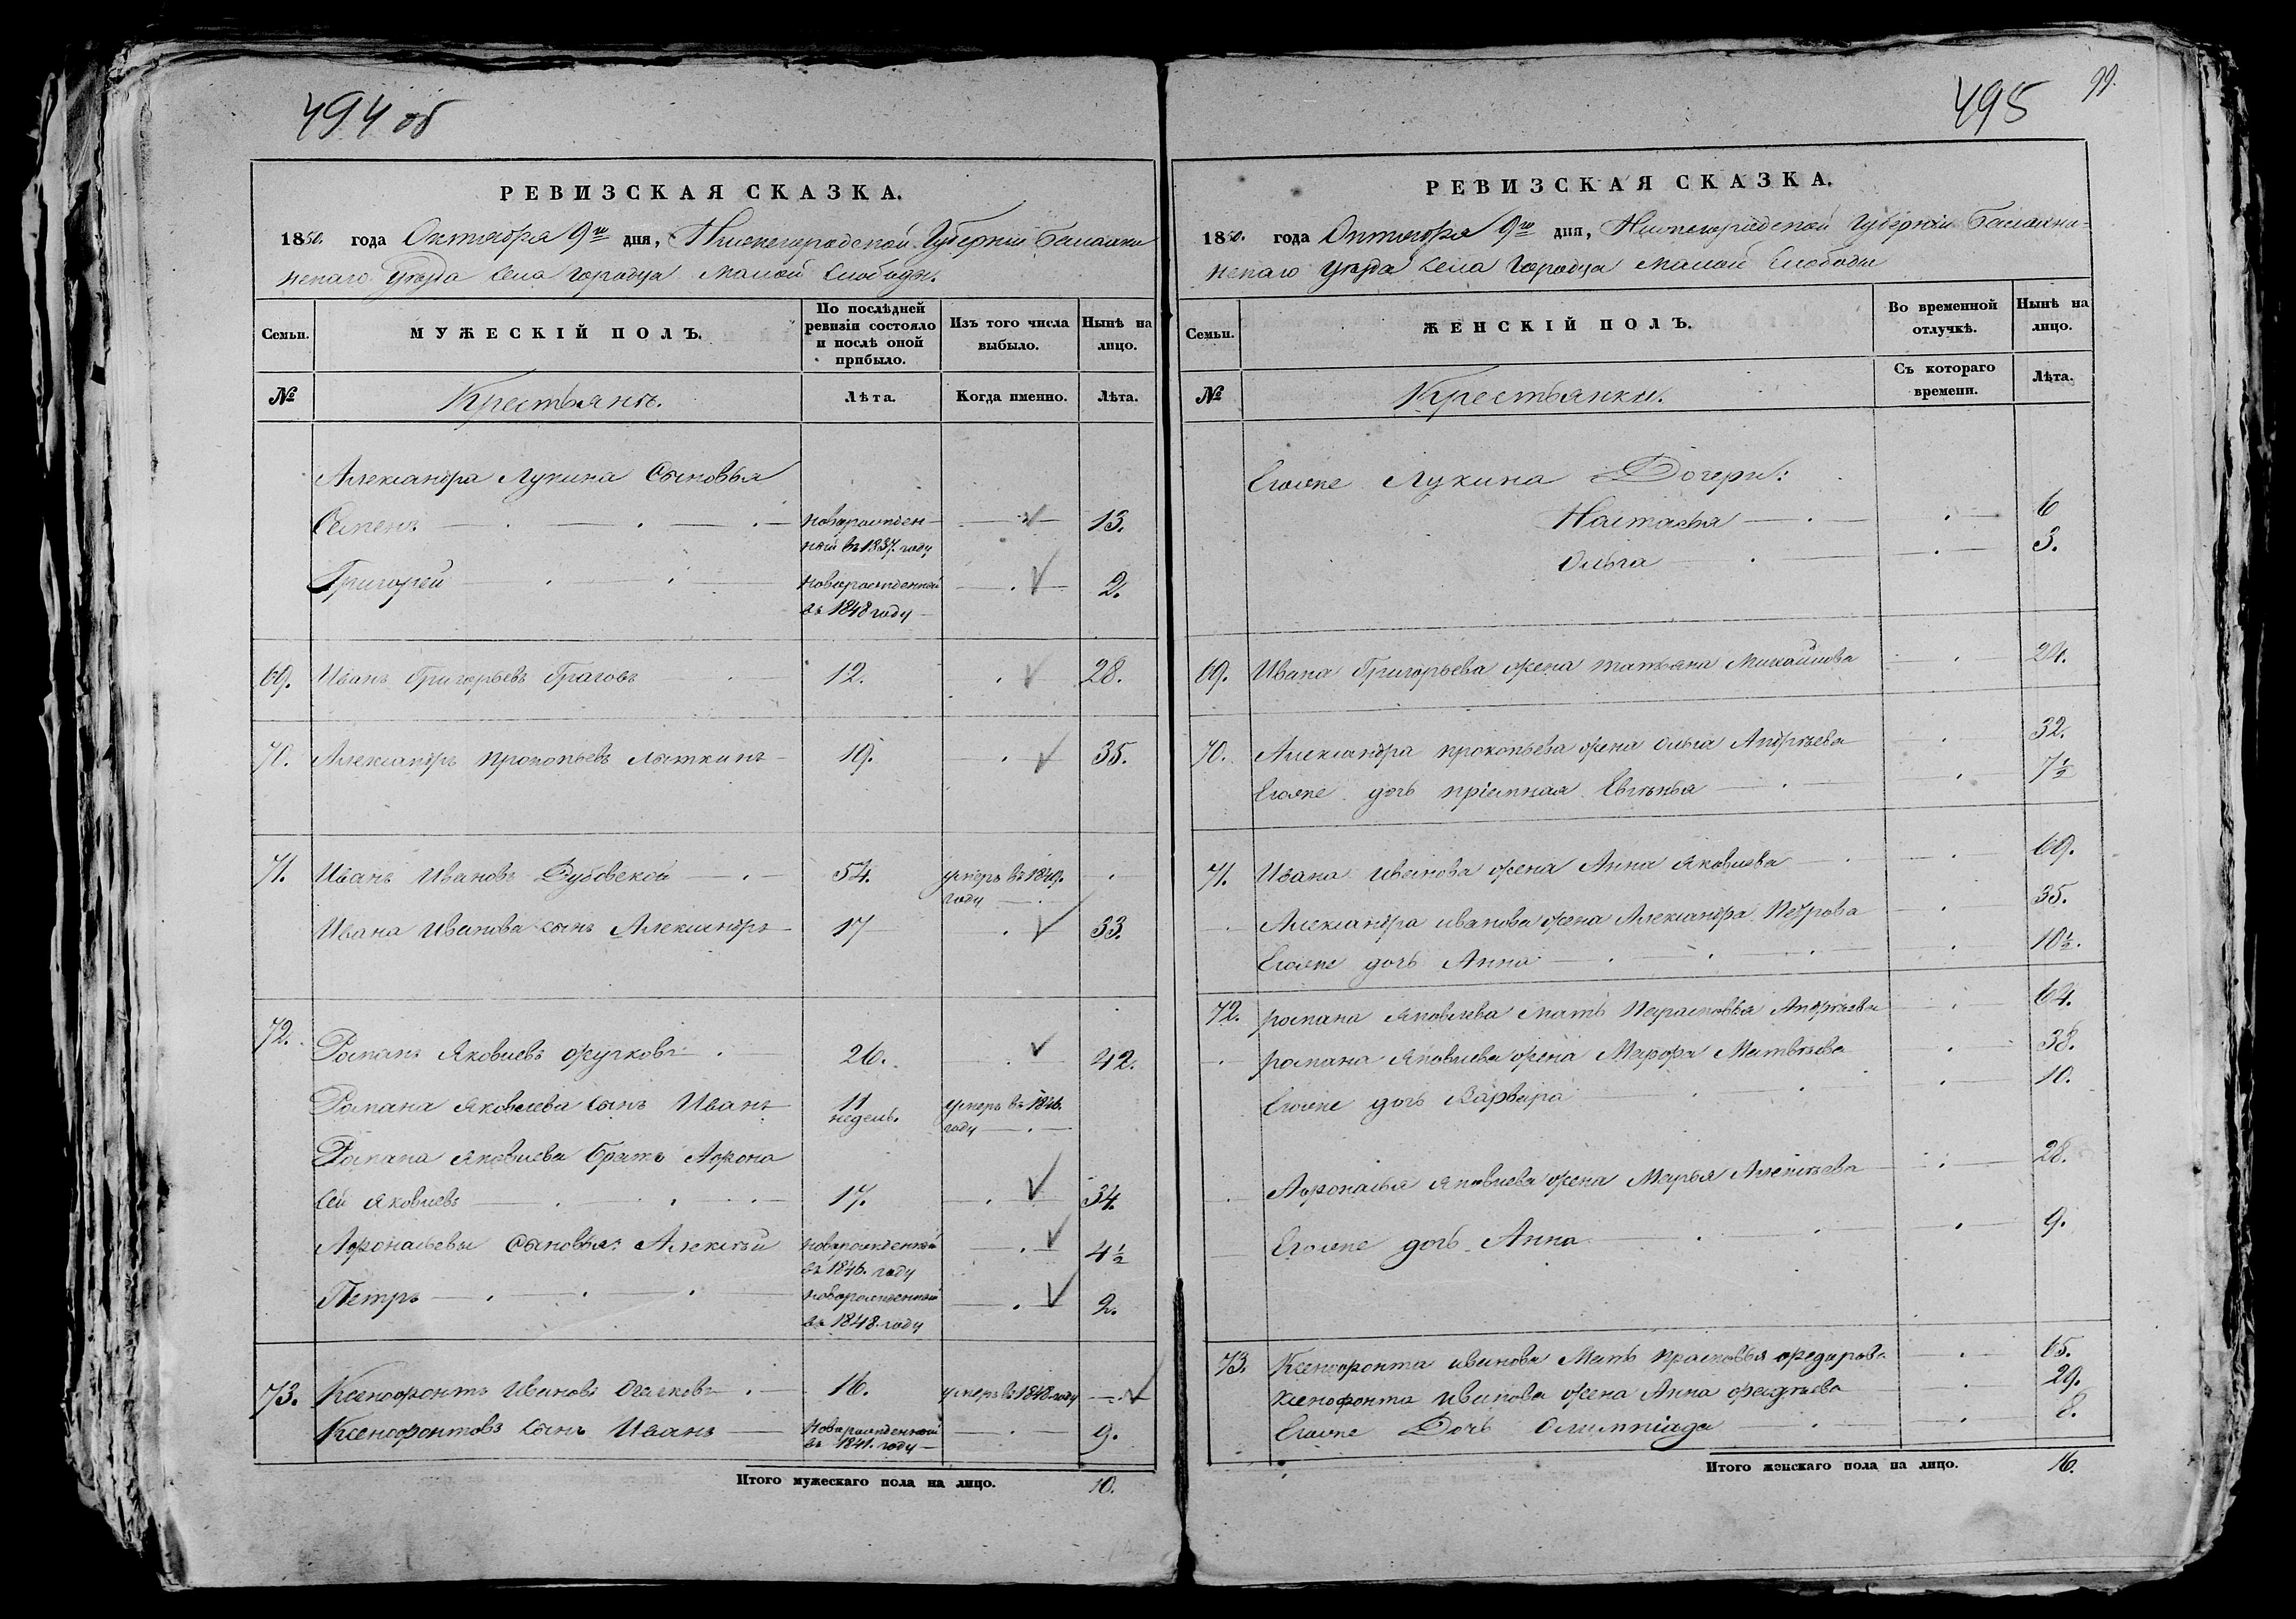 494 об
РЕВИЗСКАЯ СКАЗКА.
1850. года Октября 9го дня, Нижегородской Губернии Балахни
нскаго Уезда села Городца Малой Слободы.
Семьи.
МУЖЕСКІЙ ПОЛЪ.
По послѣдней
ревизіи состояло
и послѣ оной
прибыло.
Изъ того числа
выбыло.
Нынѣ на
лицо.
№
Крестьянъ.
Лѣта.
Когда именно.
Лѣта.
Александра Лукина Сыновья
Семенъ новорожден- 13.
ной въ 1837. году
Григорей новорожденной 2.
въ 1848 году
69. Иванъ Григорьевъ 12. 28.
70. Александръ Прокопьевъ Лыткинъ 19. 35.
71. Иванъ Ивановъ Дубовской 54. умеръ въ 1849.
году
Ивана Иванова сынъ Александръ 17 33.
72. Романъ Яковлевъ Жучковъ 26. 42.
Романа Яковлева сынъ Иванъ 11 недель. умеръ въ 1846.
году
Романа Яковлева братъ Афона
сей Яковлевъ 17. 34.
Афонасьевы Сыновья: Алексѣй новорожденной 4½
въ 1846. году
Петръ новорожденной 2.
въ 1848. году
73. Ксенофонтъ Ивановъ 16. умеръ въ 1848. году
Ксенофонтовъ сынъ Иванъ Новорожденной 9.
въ 1841. году
Итого мужескаго пола на лицо. 10.
495
99.
РЕВИЗСКАЯ СКАЗКА.
1850. года Октября 9го дня, Нижегородской Губерніи Балахни-
нскаго уезда села Городца Малой Слободы
Семьи.
ЖЕНСКІЙ ПОЛЪ.
Во временной
отлучкѣ.
Нынѣ на
лицо.
№
Крестьянки.
Съ котораго
времени.
Лѣта.
Его же Лукина Дочери:
Настасья 6
Ольга 3.
69. Ивана Григорьева жена Татьяна Михайлова 24.
70. Александра Прокопьева жена Ольга Андрѣева 32.
Его же дочь пріимная Евгѣнья 7½
71. Ивана Иванова жена Анна Яковлева 69.
Александра Иванова жена Александра Петрова 35.
Его же дочь Анна 10½.
72. Романа Яковлева мать Парасковья Андрѣева 64.
Романа Яковлева жена Марфа Матвѣева 38.
Его же дочь Варвара 10.
Афонасья Яковлева жена Марья Алексѣева 28.
Его же дочь Анна 9.
73. Ксенофонта Иванова Мать Прасковья Федарова 65.
Ксенофонта Иванова жена Анна 29.
Его же Дочь Олимпіада 8.
Итого женскаго пола на лицо. 16.